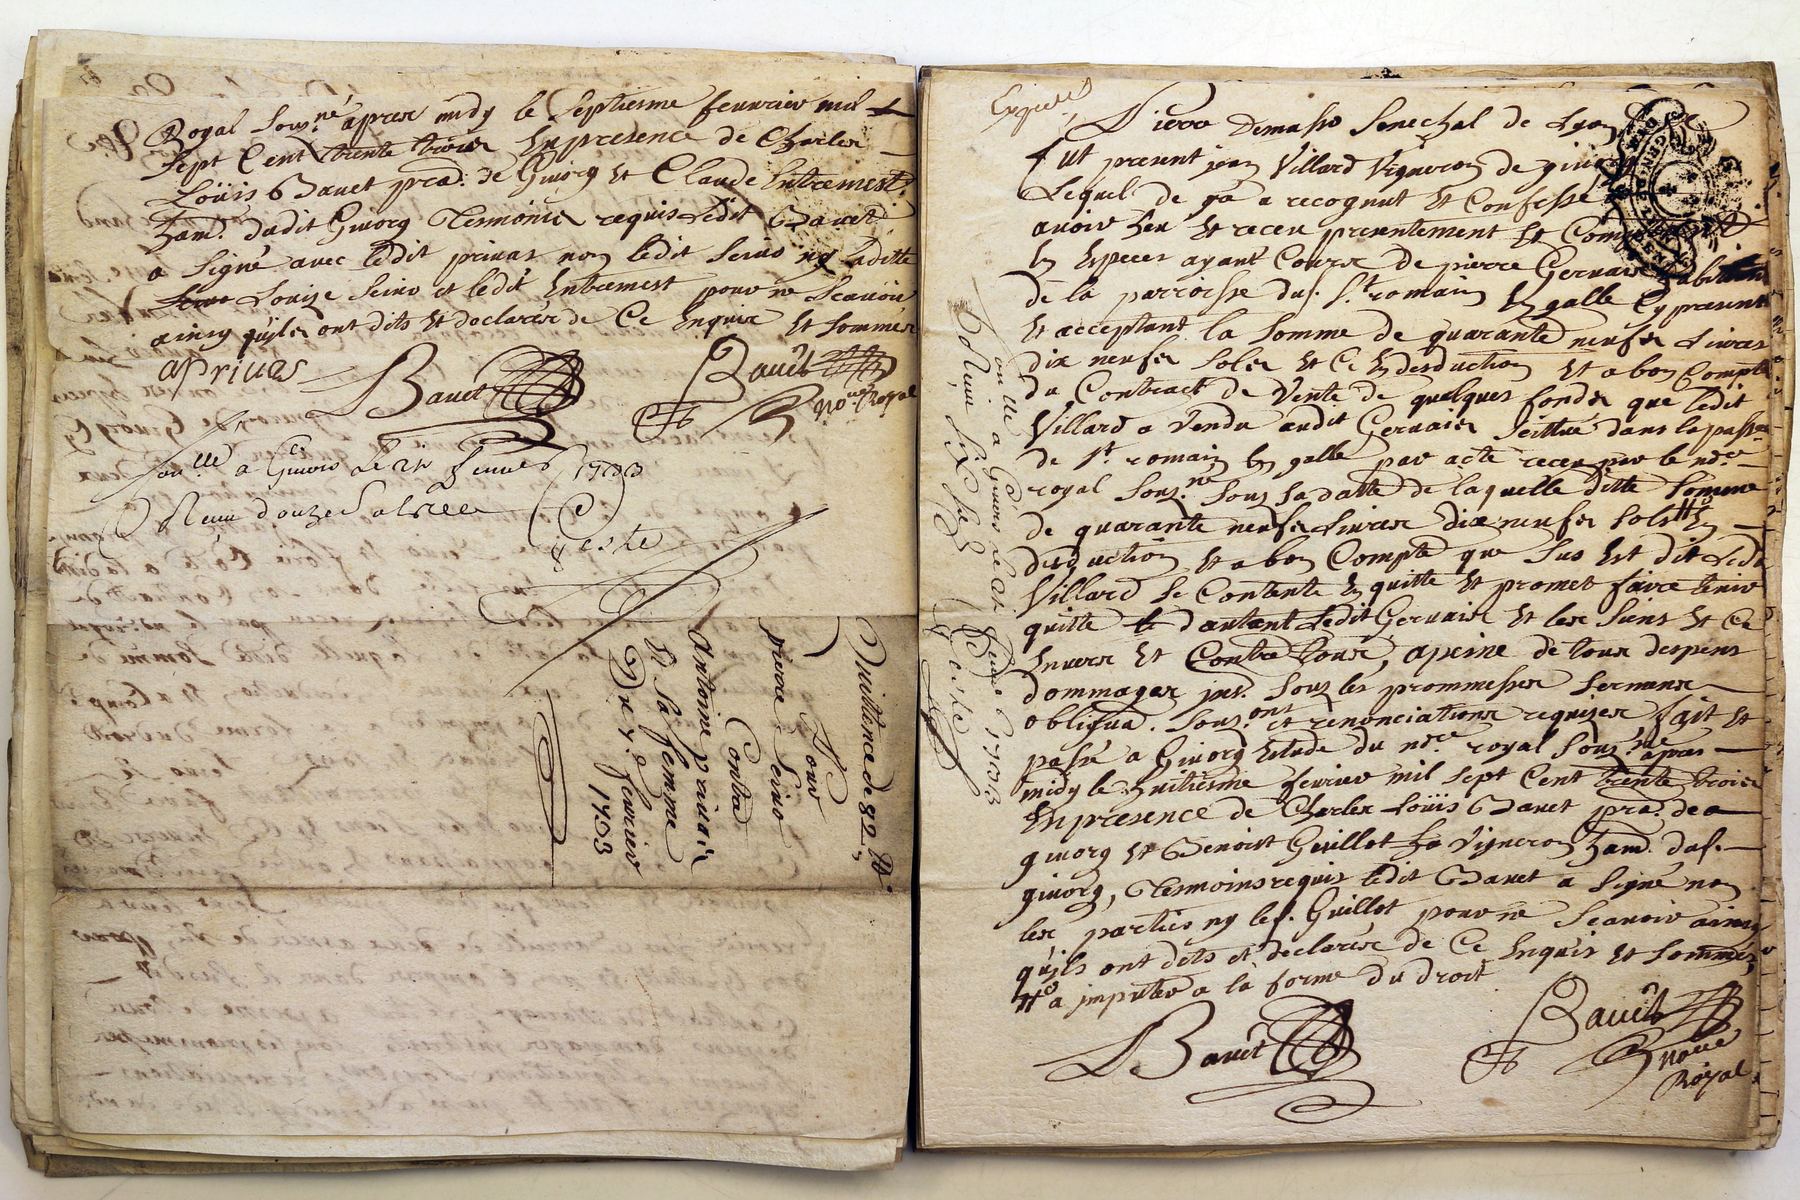 Royal sous.né apres midy le septiesme feuvrier mil
sept cent trente trois en presence de Charles
Loüis Bauet pra. de Giuorg et Claude Entremest.
dudit Giuorg tesmoins requis ledit Bauet
a signé avec ledit priuas non ledit Seiuo ny laditte
Louize Seiuo et ledit Entremest pour ne scauoir
ainsy qu'ils ont dits et declarer de ce enquis et sommer
apriuas
Bauet
Bauet
No.re Royal
a Giuors le 21 feuuer 1733
Receu douze sols
Geste
Quittance de 82 tt
Pour
pierre Seiuo
Contre
Antoine priuas
et sa femme
Du 7.e feuvrier
1733
Expedié
Pierre Demasso Senechal de Lyon
fut present jean Villard Vigneron de giuorg
Lequel de gá a recognut et Confessé
auoir heu et receu presentement et Comptant
en especes ayant Cours de pierre Geruais habitant
de la parroisse dud. s.t romain en galle cy present
et acceptant la somme de quarante neufs Liures
dix neufs sols et ce en desduction et a bon Compte
du Contract de Vente de quelques fonds que ledit
Villard a Vendu audit Geruais scittué dans la parr.
de s.t romain en galle par acte receu par le no.re
royal sous.né sous sa datte de laquelle ditte somme
de quarante neufs Liures dix neufs sols tt en
desduction et a bon Compte que sus est dit ledit
Villard se Contente en quitte et promet faire tenir
quitte d'autant ledit Geruais et les siens et ce
enuers et Contre tous, a peine de tous despens
dommages jnt. sous les prommesses sermens
obliga. sous.ons et renonciations requises fait et
passé a Giuorg estude du no.re royal sous.né apres
midy le huitiesme feurier mil sept cent trente trois
en presence de Charles Loüis Bauet pra. de
giuorg et Benoist Guillot Vigneron dud.
giuorg, tesmoins requis ledit Bauet a signé non
les parties ny led. Guillot pour ne scauoir ainsy
qu'ils ont dits et declarer de ce enquis et sommer
tt a imputer a la forme du droit
Bauet
Bauet
No.re
Royal
a Giuors le 21 feu. 1733
Receu six sols
Geste